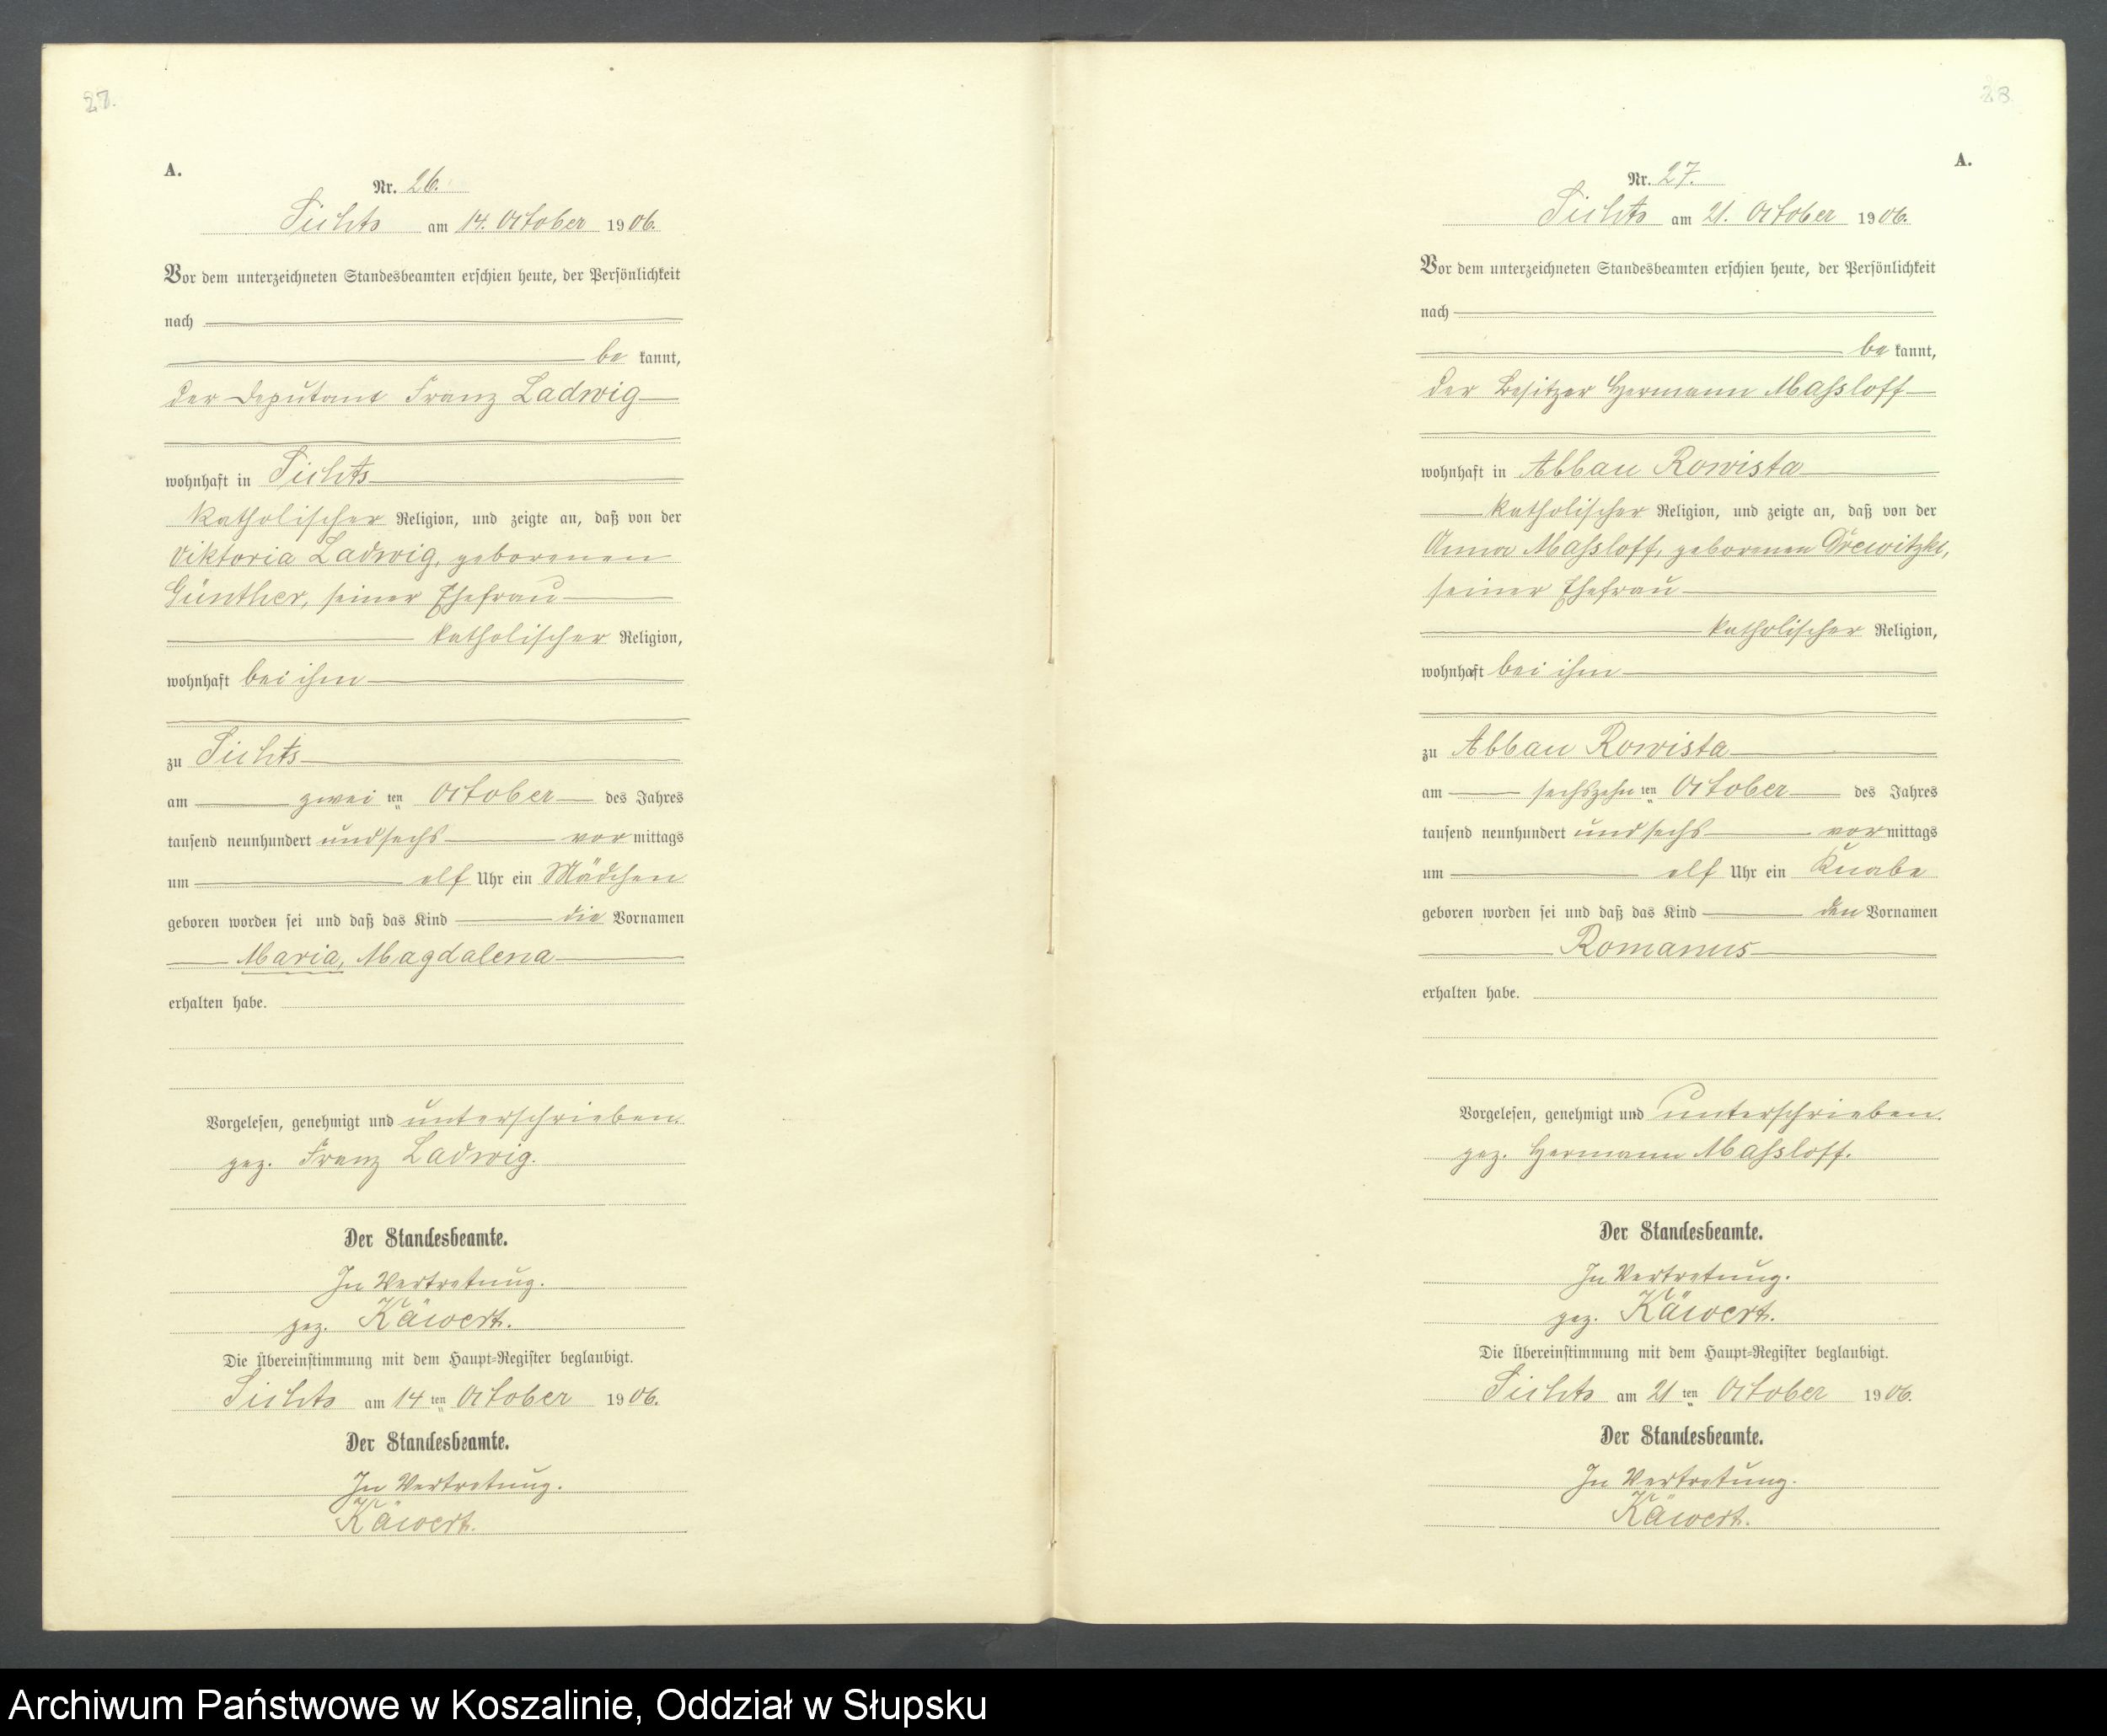 27.
A.
Nr. 26.
Sichts am 14. October 1906.
Vor dem unterzeichneten Standesbeamten erschien heute, der Persönlichkeit
nach
be kannt,
der Deputant Franz Ladwig
wohnhaft in Sichts
katholischer Religion, und zeigte an, daß von der
Viktoria Ladwig, geborenen
Günther, seiner Ehefrau
katholischer Religion,
wohnhaft bei ihm
zu Sichts
am zwei ten October des Jahres
tausend neunhundert und sechs vor mittags
um elf Uhr ein Mädchen
geboren worden sei und daß das Kind die Vornamen
Maria, Magdalena
erhalten habe.
Vorgelesen, genehmigt und unterschrieben.
gez. Franz Ladwig.
Der Standesbeamte.
In Vertretung.
gez. Käwert.
Die Übereinstimmung mit dem Haupt-Register beglaubigt.
Sichts am 14 ten October 1906.
Der Standesbeamte.
In Vertretung.
Käwert.
28.
A.
Nr. 27.
Sichts am 21. October 1906.
Vor dem unterzeichneten Standesbeamten erschien heute, der Persönlichkeit
nach
be kannt,
der Besitzer Hermann Maßloff
wohnhaft in Abbau Rowista
katholischer Religion, und zeigte an, daß von der
Anna Maßloff, geborenen
seiner Ehefrau
katholischer Religion,
wohnhaft bei ihm
zu Abbau Rowista
am sechszehn ten October des Jahres
tausend neunhundert und sechs vor mittags
um elf Uhr ein Knabe
geboren worden sei und daß das Kind den Vornamen
Romanus
erhalten habe.
Vorgelesen, genehmigt und unterschrieben.
gez. Hermann Maßloff.
Der Standesbeamte.
In Vertretung.
gez. Käwert.
Die Übereinstimmung mit dem Haupt-Register beglaubigt.
Sichts am 21 ten October 1906.
Der Standesbeamte.
In Vertretung.
Käwert.
Archiwum Państwowe w Koszalinie, Oddział w Słupsku